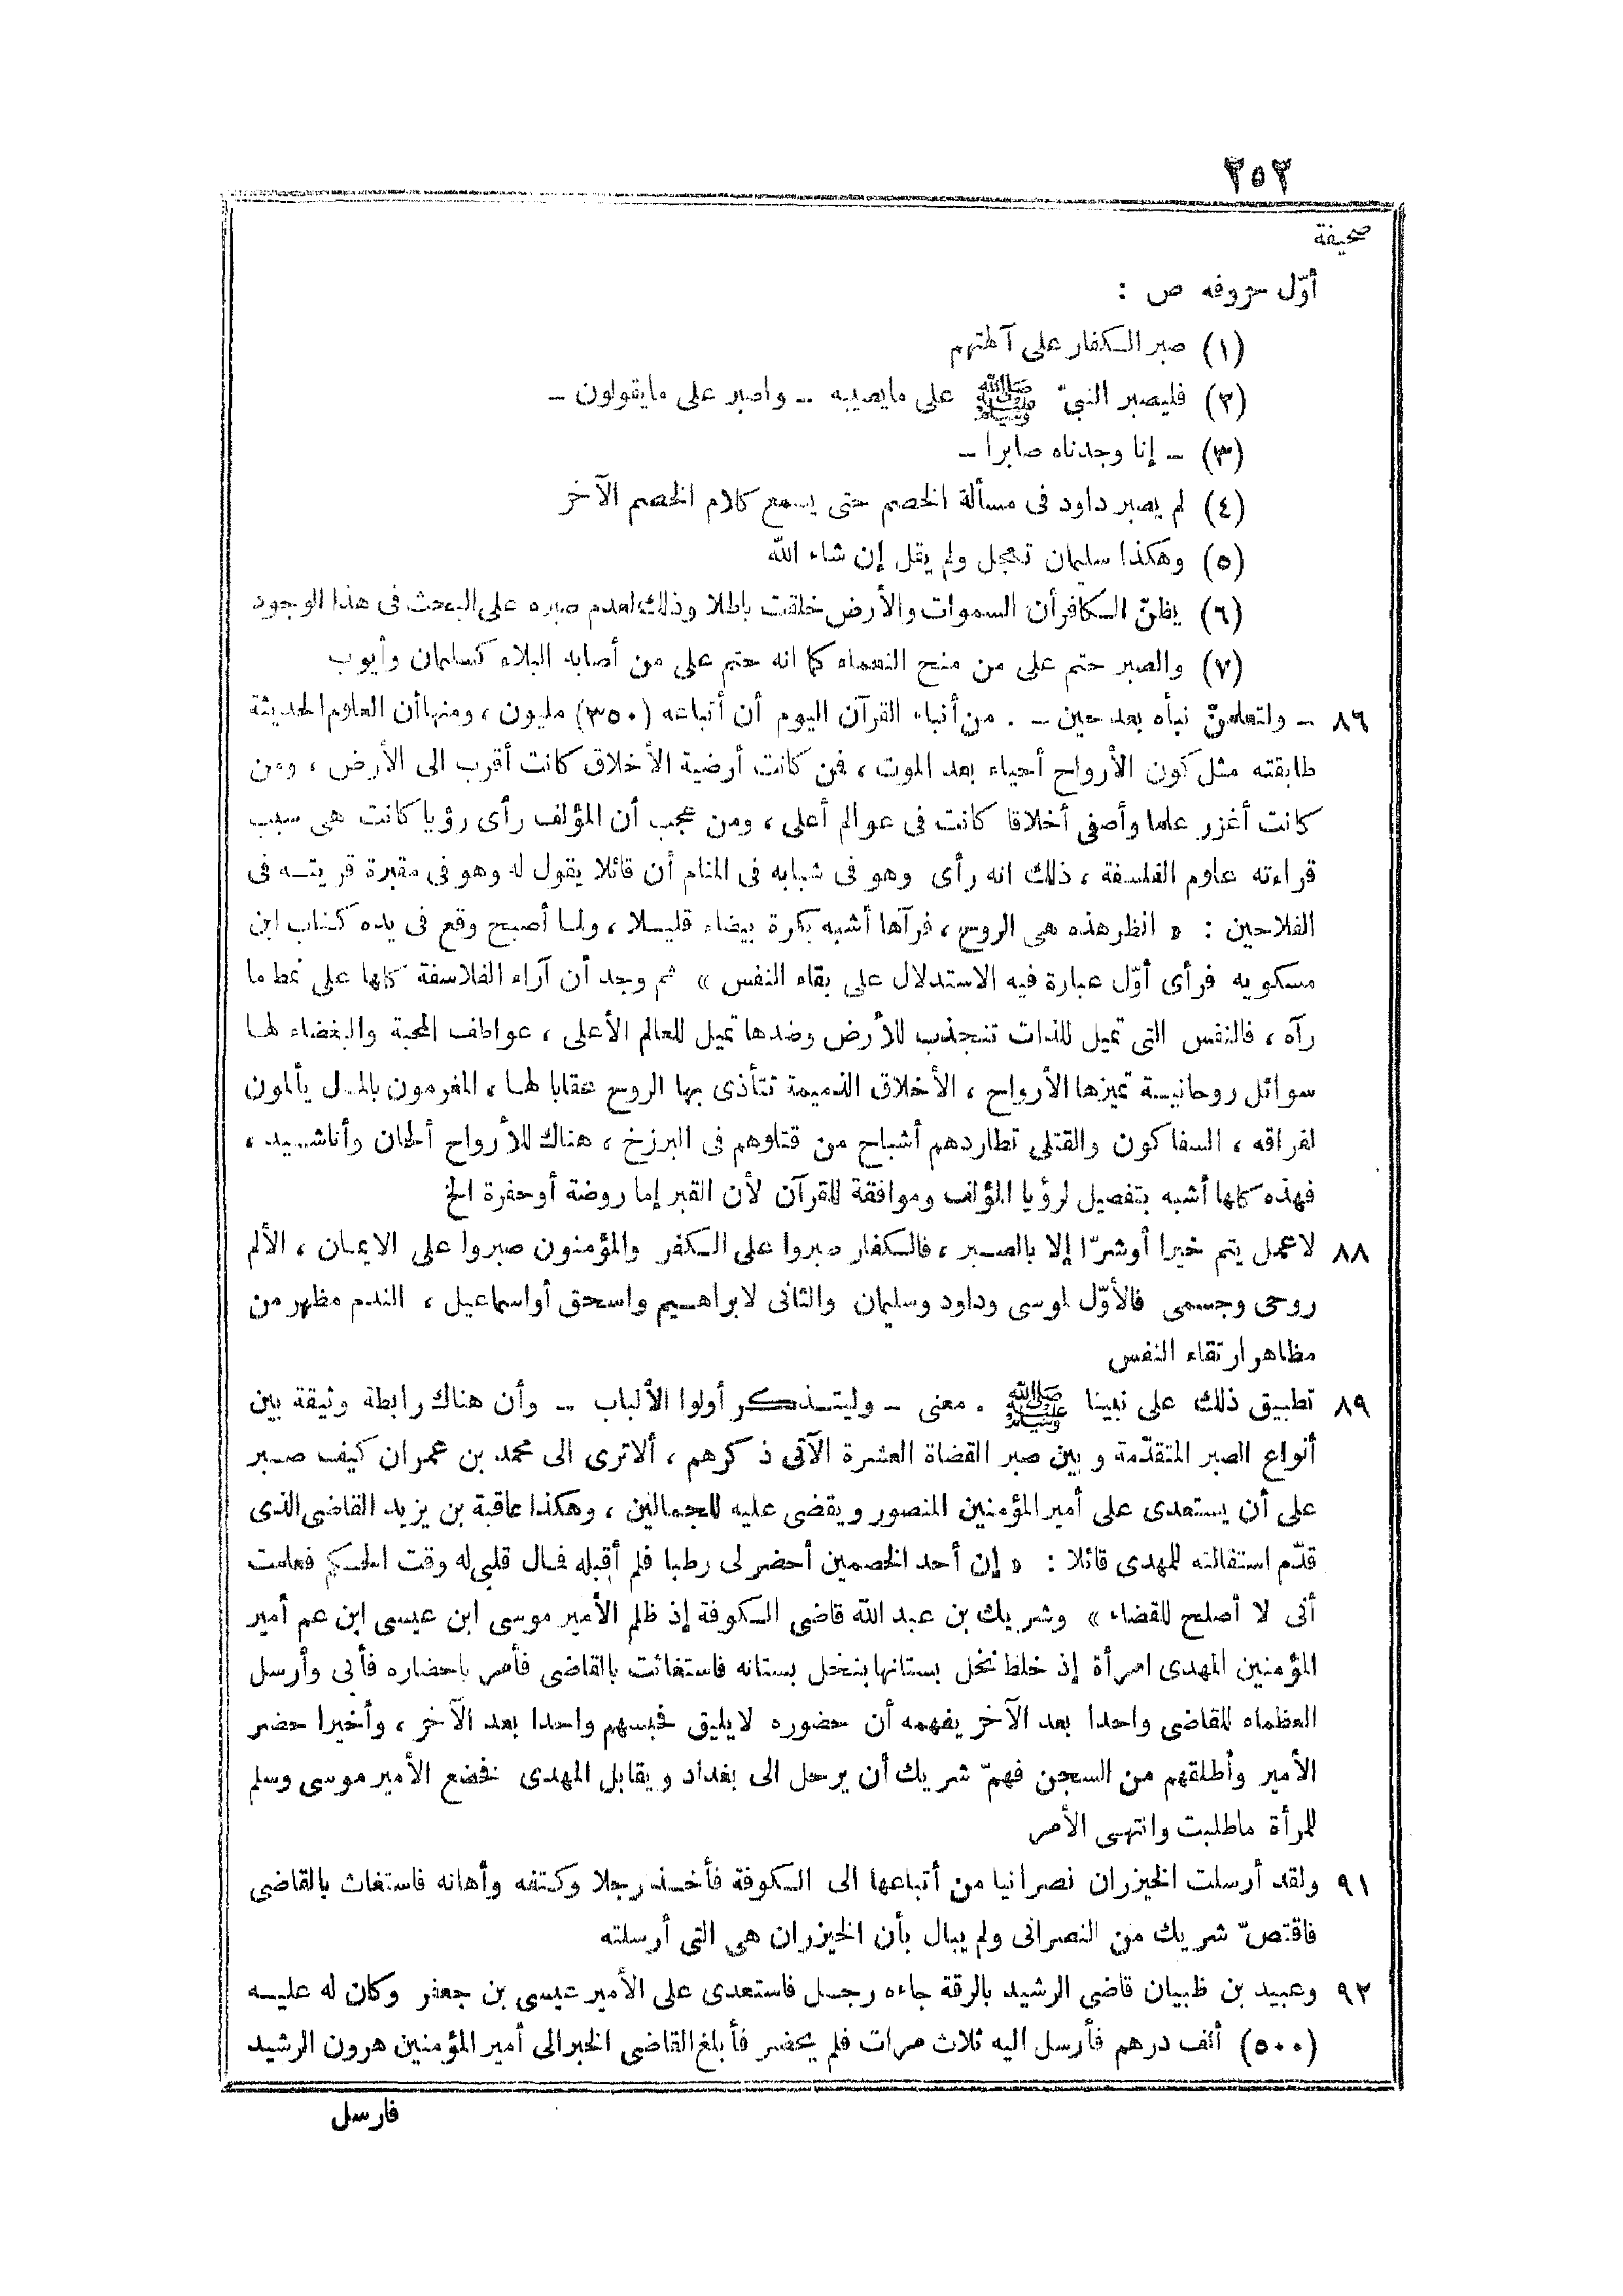 ٢٥٢
صحيفة
أوّل حروفه ص :
(١) صبر الكفار على آلهتهم
(٢) فليصبر النبىّ ﷺ على مايصيبه _ واصبر على مايقولون _
(٣) _ إنا وجدناه صابرا _
(٤) لم يصبر داود فى مسألة الخصم حتى يسمع كلام الخصم الآخر
(٥) وهكذا سليمان تعجل ولم يقل إن شاء الله
(٦) يظنّ الكافر أن السموات والأرض خلقت باطلا وذلك لعدم صبره على البحث فى هذا الوجود
(٧) والصبر حتم على من منح النعماء كما انه حتم على من أصابه البلاء كسليمان وأيوب
٨٦ _ ولتعلمنّ نبأه بعد حين _ . من أنباء القرآن اليوم أن أتباعه (٣٥٠) مليون ، ومنها أن العلوم الحديثة
طابقته مثل كون الأرواح أحياء بعد الموت ، فمن كانت أرضية الأخلاق كانت أقرب الى الأرض ، ومن
كانت أغزر علما وأصفى أخلاقا كانت فى عوالم أعلى ، ومن عجب أن المؤلف رأى رؤيا كانت هى سبب
قراءته علوم الفلسفة ، ذلك انه رأى وهو فى شبابه فى المنام أن قائلا يقول له وهو فى مقبرة قريته فى
الفلاحين : « انظر هذه هى الروح ، فرآها أشبه بكرة بيضاء قليلا ، ولما أصبح وقع فى يده كتاب ابن
مسكويه فرأى أوّل عبارة فيه الاستدلال على بقاء النفس » ثم وجد أن آراء الفلاسفة كلها على نمط ما
رآه ، فالنفس التى تميل للذات تنجذب للأرض وضدها تميل للعالم الأعلى ، عواطف المحبة والبغضاء لها
سوائل روحانية تميزها الأرواح ، الأخلاق الذميمة تتأذى بها الروح عقابا لها ، المغرمون بالمال يألمون
لفراقه ، السفاكون والقتلى تطاردهم أشباح من قتلوهم فى البرزخ ، هناك للأرواح ألحان وأناشيد ،
فهذه كلها أشبه بتفصيل لرؤيا المؤلف وموافقة للقرآن لأن القبر إما روضة أو حفرة الخ
٨٨ لاعمل يتم خيرا أوشرّا إلا بالصبر ، فالكفار صبروا على الكفر والمؤمنون صبروا على الايمان ، الألم
روحى وجسمى فالأوّل لموسى وداود وسليمان والثانى لابراهيم واسحق أواسماعيل ، الندم مظهر من
مظاهر ارتقاء النفس
٨٩ تطبيق ذلك على نبينا ﷺ . معنى _ وليتذكر أولوا الألباب _ وأن هناك رابطة وثيقة بين
أنواع الصبر المتقدّمة وبين صبر القضاة العشرة الآتى ذكرهم ، ألاترى الى محمد بن عمران كيف صبر
على أن يستعدى على أمير المؤمنين المنصور ويقضى عليه للجمالين ، وهكذا عاقبة بن يزيد القاضى الذى
قدّم استقالته للمهدى قائلا : « إن أحد الخصمين أحضر لى رطبا فلم أقبله فمال قلبى له وقت الحكم فعلمت
أنى لا أصلح للقضاء » وشريك بن عبد الله قاضى الكوفة إذ ظلم الأمير موسى ابن عيسى ابن عم أمير
المؤمنين المهدى امرأة إذ خلط نخل بستانها بنخل بستانه فاستغاثت بالقاضى فأمر باحضاره فأبى وأرسل
العظماء للقاضى واحدا بعد الآخر يفهمه أن حضوره لايليق فحبسهم واحدا بعد الآخر ، وأخيرا حضر
الأمير وأطلقهم من السجن فهمّ شريك أن يرحل الى بغداد ويقابل المهدى فخضع الأمير موسى وسلم
للمرأة ماطلبت وانتهى الأمر
٩١ ولقد أرسلت الخيزران نصرانيا من أتباعها الى الكوفة فأخذ رجلا وكتفه وأهانه فاستغاث بالقاضى
فاقتصّ شريك من النصرانى ولم يبال بأن الخيزران هى التى أرسلته
٩٢ وعبيد بن ظبيان قاضى الرشيد بالرقة جاءه رجل فاستعدى على الأمير عيسى بن جعفر وكان له عليه
(٥٠٠) ألف درهم فأرسل اليه ثلاث مرات فلم يحضر فأبلغ القاضى الخبر الى أمير المؤمنين هرون الرشيد
فارسل